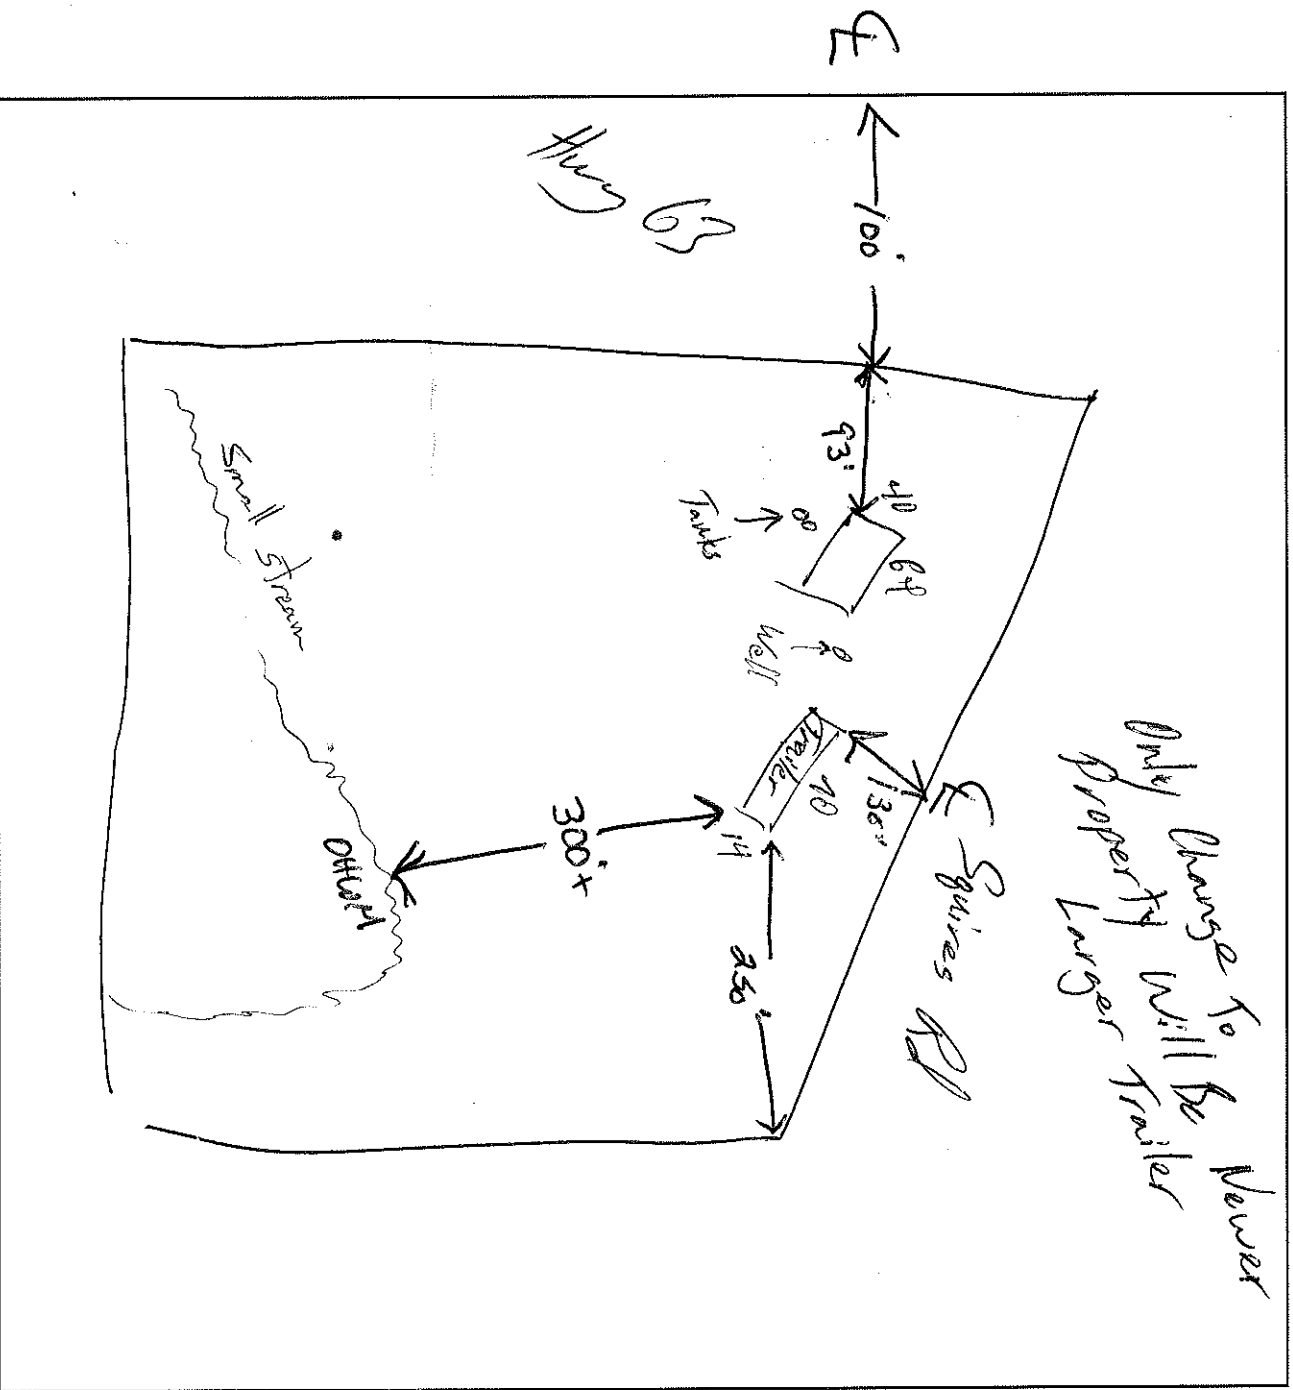 Only Change To
Property Will Be Newer
Larger Trailer
℄ Squires Rd
130'
℄
100'
Hwy 63
93'
40
64
Tanks
Well
Trailer
70
14
250'
300'+
OHWM
Small Stream